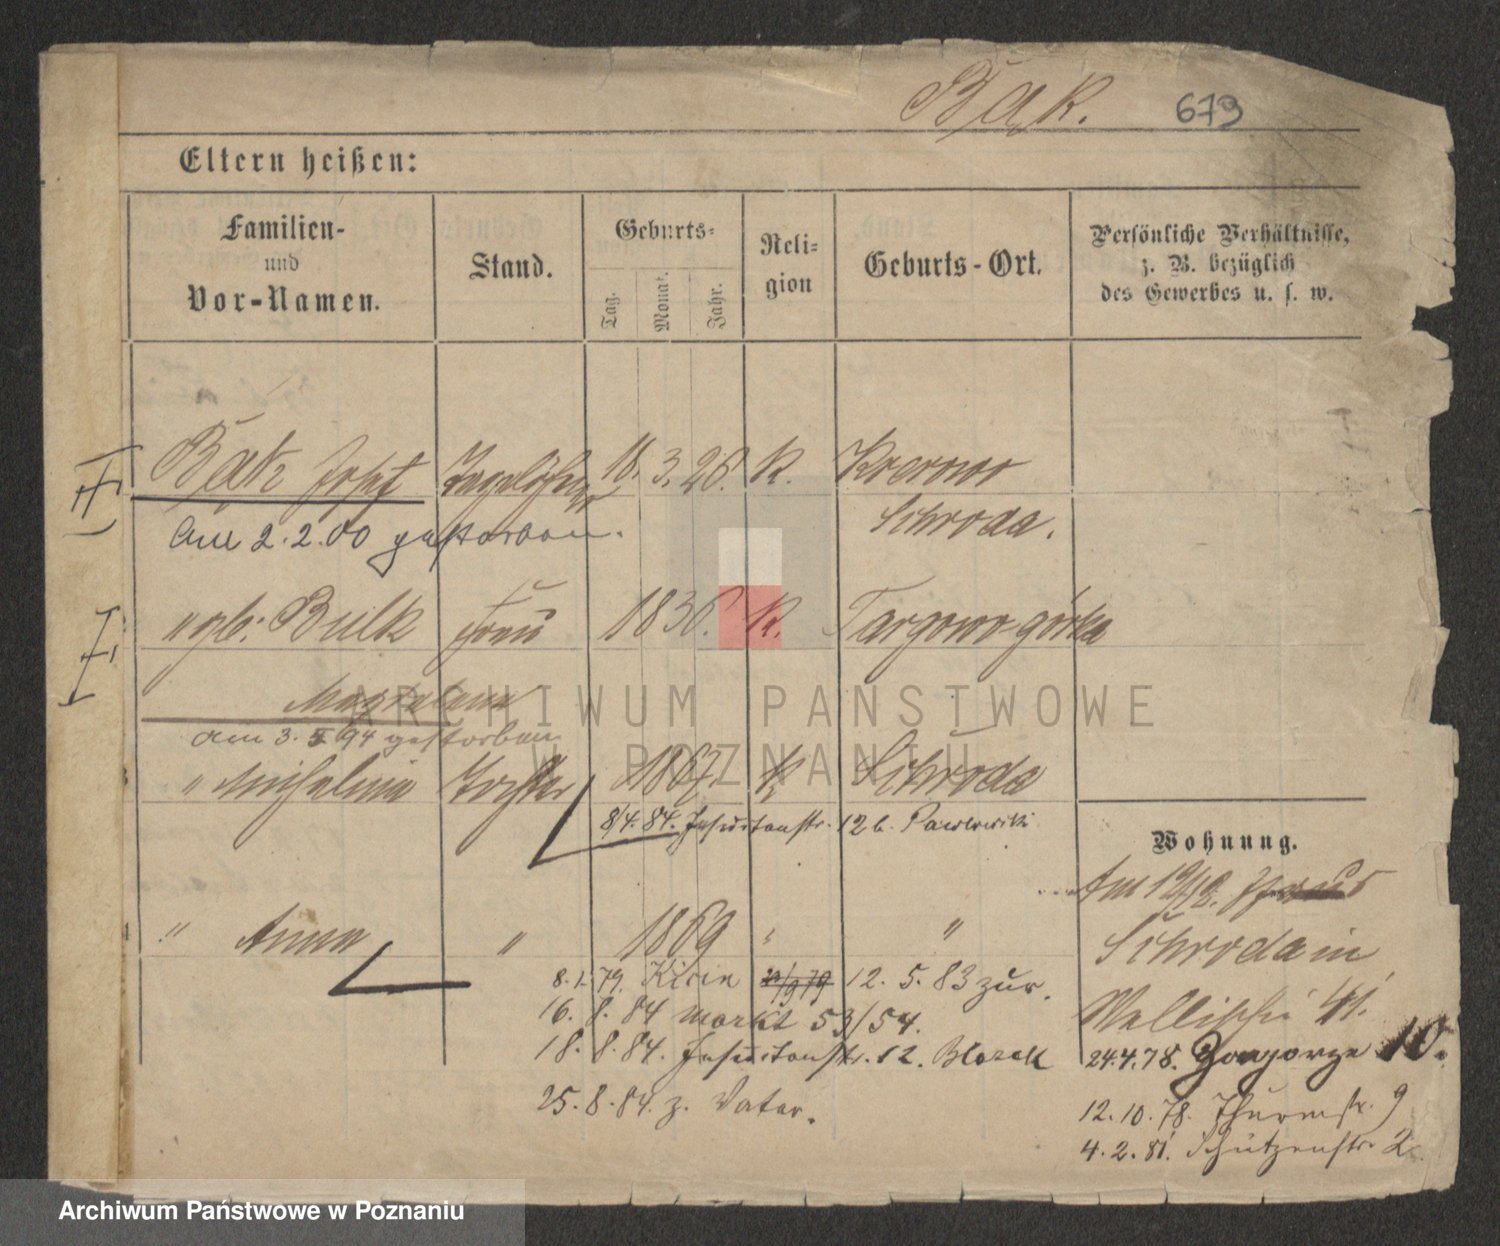 Bąk. 679
Eltern heißen:
Familien- und Vor-Namen.
Stand.
Geburts-
Tag. Monat. Jahr.
Reli-gion
Geburts-Ort.
Persönliche Verhältnisse, z. B. bezüglich des Gewerbes u. s. w.
Bąk Josef Tagelöhner 18. 3. 26. K.
Schroda.
Am 2. 2. 00 gestorben.
" gb. Bulk Frau 1836. K. Targowo-górka
Magdalena
am 3. 5 94 gestorben
" Michalina Tochter 1867. K Schroda
8/4. 84. Jesuitenstr. 12 b. Pawlowicki
Wohnung.
" Anna " 1869 " "
Schroda in
8. 1. 79. 12. 5. 83 zur.
Wallischei 41.
16. 8. 84 Markt 53/54.
18. 8. 84. Jesuitenstr. 12.
24. 4. 78. Zagorze 10.
25. 8. 84. z. Vater.
12. 10. 78. Thurmstr. 9
4. 2. 81. Schützenstr. 2
ARCHIWUM PAŃSTWOWE
W POZNANIU
Archiwum Państwowe w Poznaniu